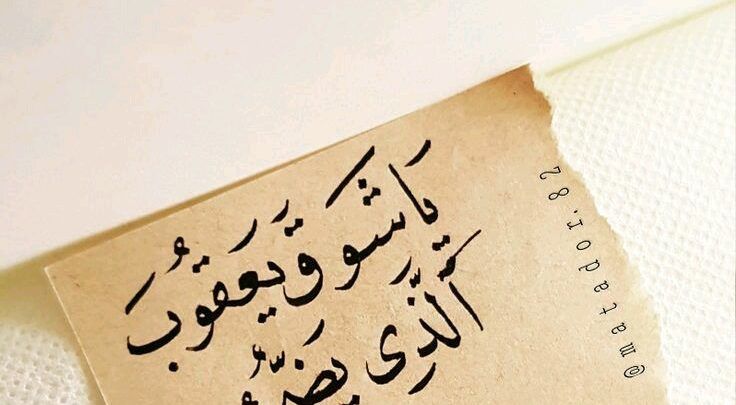 يَا شَوقَ يَعَقوُبَ
الَّذِي
@matador.82